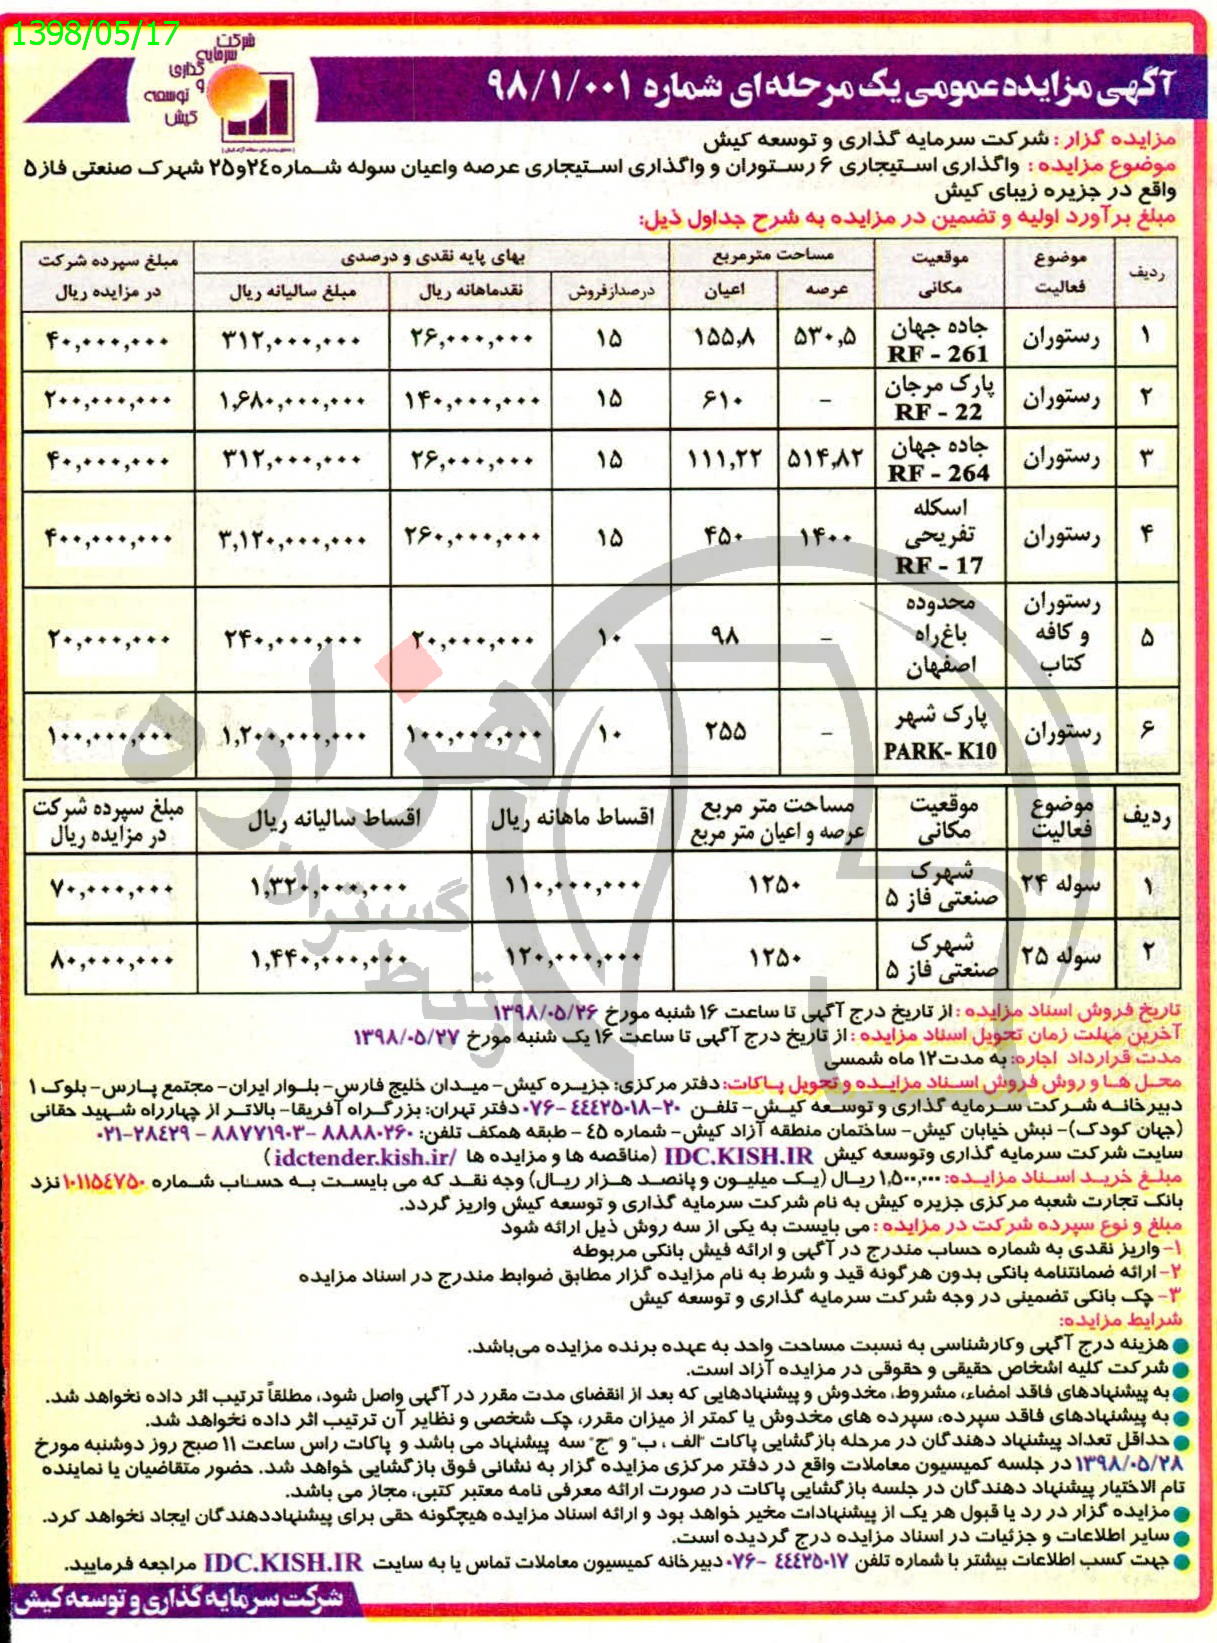 1398/05/17
شرکت
سرمایه
گذاری
و
توسعه
کیش
آگهی مزایده عمومی یک مرحله ای شماره ۹۸/۱/۰۰۱
مزایده گزار : شرکت سرمایه گذاری و توسعه کیش
موضوع مزایده : واگذاری استیجاری ۶ رستوران و واگذاری استیجاری عرصه واعیان سوله شماره۲۴و۲۵ شهرک صنعتی فاز۵
واقع در جزیره زیبای کیش
مبلغ برآورد اولیه و تضمین در مزایده به شرح جداول ذیل:
ردیف | موضوع فعالیت | موقعیت مکانی | مساحت مترمربع | بهای پایه نقدی و درصدی | مبلغ سپرده شرکت در مزایده ریال
عرصه | اعیان | درصدازفروش | نقدماهانه ریال | مبلغ سالیانه ریال
۱ | رستوران | جاده جهان RF - 261 | ۵۳۰,۵ | ۱۵۵,۸ | ۱۵ | ۲۶,۰۰۰,۰۰۰ | ۳۱۲,۰۰۰,۰۰۰ | ۴۰,۰۰۰,۰۰۰
۲ | رستوران | پارک مرجان RF - 22 | - | ۶۱۰ | ۱۵ | ۱۴۰,۰۰۰,۰۰۰ | ۱,۶۸۰,۰۰۰,۰۰۰ | ۲۰۰,۰۰۰,۰۰۰
۳ | رستوران | جاده جهان RF - 264 | ۵۱۴,۸۲ | ۱۱۱,۲۲ | ۱۵ | ۲۶,۰۰۰,۰۰۰ | ۳۱۲,۰۰۰,۰۰۰ | ۴۰,۰۰۰,۰۰۰
۴ | رستوران | اسکله تفریحی RF - 17 | ۱۴۰۰ | ۴۵۰ | ۱۵ | ۲۶۰,۰۰۰,۰۰۰ | ۳,۱۲۰,۰۰۰,۰۰۰ | ۴۰۰,۰۰۰,۰۰۰
۵ | رستوران و کافه کتاب | محدوده باغ‌راه اصفهان | - | ۹۸ | ۱۰ | ۲۰,۰۰۰,۰۰۰ | ۲۴۰,۰۰۰,۰۰۰ | ۲۰,۰۰۰,۰۰۰
۶ | رستوران | پارک شهر PARK- K10 | - | ۲۵۵ | ۱۰ | ۱۰۰,۰۰۰,۰۰۰ | ۱,۲۰۰,۰۰۰,۰۰۰ | ۱۰۰,۰۰۰,۰۰۰
ردیف | موضوع فعالیت | موقعیت مکانی | مساحت متر مربع عرصه و اعیان متر مربع | اقساط ماهانه ریال | اقساط سالیانه ریال | مبلغ سپرده شرکت در مزایده ریال
۱ | سوله ۲۴ | شهرک صنعتی فاز ۵ | ۱۲۵۰ | ۱۱۰,۰۰۰,۰۰۰ | ۱,۳۲۰,۰۰۰,۰۰۰ | ۷۰,۰۰۰,۰۰۰
۲ | سوله ۲۵ | شهرک صنعتی فاز ۵ | ۱۲۵۰ | ۱۲۰,۰۰۰,۰۰۰ | ۱,۴۴۰,۰۰۰,۰۰۰ | ۸۰,۰۰۰,۰۰۰
هزاره گستران ارتباط
تاریخ فروش اسناد مزایده : از تاریخ درج آگهی تا ساعت ۱۶ شنبه مورخ ۱۳۹۸/۰۵/۲۶
آخرین مهلت زمان تحویل اسناد مزایده : از تاریخ درج آگهی تا ساعت ۱۶ یک شنبه مورخ ۱۳۹۸/۰۵/۲۷
مدت قرارداد اجاره: به مدت۱۲ ماه شمسی
محل ها و روش فروش اسناد مزایده و تحویل پاکات: دفتر مرکزی: جزیره کیش- میدان خلیج فارس- بلوار ایران- مجتمع پارس- بلوک ۱
دبیرخانه شرکت سرمایه گذاری و توسعه کیش- تلفن ۲۰-۴۴۴۲۵۰۱۸ -۰۷۶دفتر تهران: بزرگراه آفریقا- بالاتر از چهارراه شهید حقانی
(جهان کودک)- نبش خیابان کیش- ساختمان منطقه آزاد کیش- شماره ۴۵ - طبقه همکف تلفن: ۸۸۸۸۰۲۶۰ -۸۸۷۷۱۹۰۳ - ۰۲۱-۲۸۴۲۹
سایت شرکت سرمایه گذاری وتوسعه کیش IDC.KISH.IR (مناقصه ها و مزایده ها /idctender.kish.ir)
مبلغ خرید اسناد مزایده: ۱,۵۰۰,۰۰۰ ریال (یک میلیون و پانصد هزار ریال) وجه نقد که می بایست به حساب شماره ۱۰۱۱۵۴۷۵۰نزد
بانک تجارت شعبه مرکزی جزیره کیش به نام شرکت سرمایه گذاری و توسعه کیش واریز گردد.
مبلغ و نوع سپرده شرکت در مزایده : می بایست به یکی از سه روش ذیل ارائه شود
۱- واریز نقدی به شماره حساب مندرج در آگهی و ارائه فیش بانکی مربوطه
۲- ارائه ضمانتنامه بانکی بدون هرگونه قید و شرط به نام مزایده گزار مطابق ضوابط مندرج در اسناد مزایده
۳- چک بانکی تضمینی در وجه شرکت سرمایه گذاری و توسعه کیش
شرایط مزایده:
هزینه درج آگهی وکارشناسی به نسبت مساحت واحد به عهده برنده مزایده می‌باشد.
شرکت کلیه اشخاص حقیقی و حقوقی در مزایده آزاد است.
به پیشنهادهای فاقد امضاء، مشروط، مخدوش و پیشنهادهایی که بعد از انقضای مدت مقرر در آگهی واصل شود، مطلقاً ترتیب اثر داده نخواهد شد.
به پیشنهادهای فاقد سپرده، سپرده های مخدوش یا کمتر از میزان مقرر، چک شخصی و نظایر آن ترتیب اثر داده نخواهد شد.
حداقل تعداد پیشنهاد دهندگان در مرحله بازگشایی پاکات "الف ، ب" و "ج" سه پیشنهاد می باشد و پاکات راس ساعت ۱۱ صبح روز دوشنبه مورخ
۱۳۹۸/۰۵/۲۸ در جلسه کمیسیون معاملات واقع در دفتر مرکزی مزایده گزار به نشانی فوق بازگشایی خواهد شد. حضور متقاضیان یا نماینده
تام الاختیار پیشنهاد دهندگان در جلسه بازگشایی پاکات در صورت ارائه معرفی نامه معتبر کتبی، مجاز می باشد.
مزایده گزار در رد یا قبول هر یک از پیشنهادات مخیر خواهد بود و ارائه اسناد مزایده هیچگونه حقی برای پیشنهاددهندگان ایجاد نخواهد کرد.
سایر اطلاعات و جزئیات در اسناد مزایده درج گردیده است.
جهت کسب اطلاعات بیشتر با شماره تلفن ۴۴۴۲۵۰۱۷ -۰۷۶دبیرخانه کمیسیون معاملات تماس یا به سایت IDC.KISH.IR مراجعه فرمایید.
شرکت سرمایه گذاری و توسعه کیش